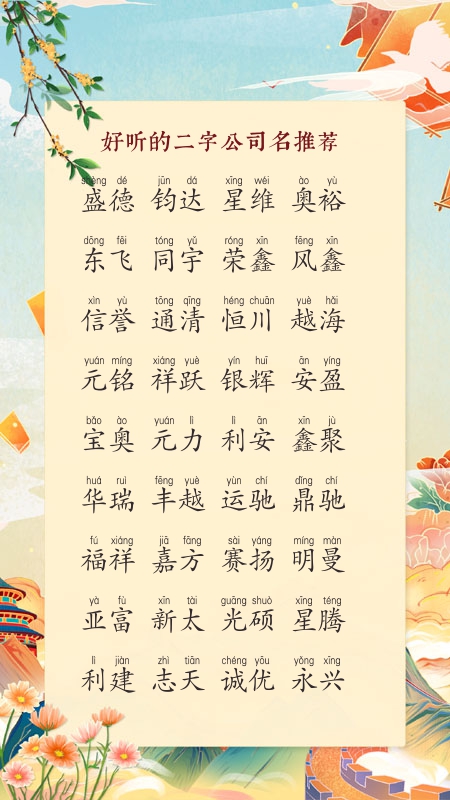 好听的二字公司名推荐
shèng dé jūn dá xīng wéi ào yù
盛德 钧达 星维 奥裕
dōng fēi tóng yǔ róng xīn fēng xīn
东飞 同宇 荣鑫 风鑫
xìn yù tōng qīng héng chuān yuè hǎi
信誉 通清 恒川 越海
yuán míng xiáng yuè yín huī ān yíng
元铭 祥跃 银辉 安盈
bǎo ào yuán lì lì ān xīn jù
宝奥 元力 利安 鑫聚
huá ruì fēng yuè yùn chí dǐng chí
华瑞 丰越 运驰 鼎驰
fú xiáng jiā fāng sài yáng míng màn
福祥 嘉方 赛扬 明曼
yà fù xīn tài guāng shuò xīng téng
亚富 新太 光硕 星腾
lì jiàn zhì tiān chéng yōu yǒng xīng
利建 志天 诚优 永兴